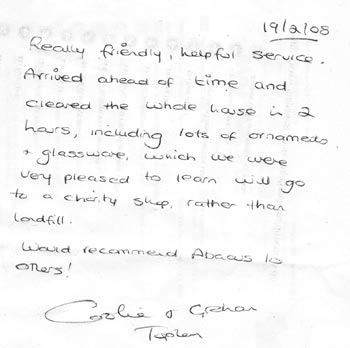 19/2/08
Really friendly, helpful service.
Arrived ahead of time and
cleared the whole house in 2
hours, including lots of ornaments
+ glassware, which we were
very pleased to learn will go
to a charity shop, rather than
landfill.
Would recommend Abacus to
others!
&